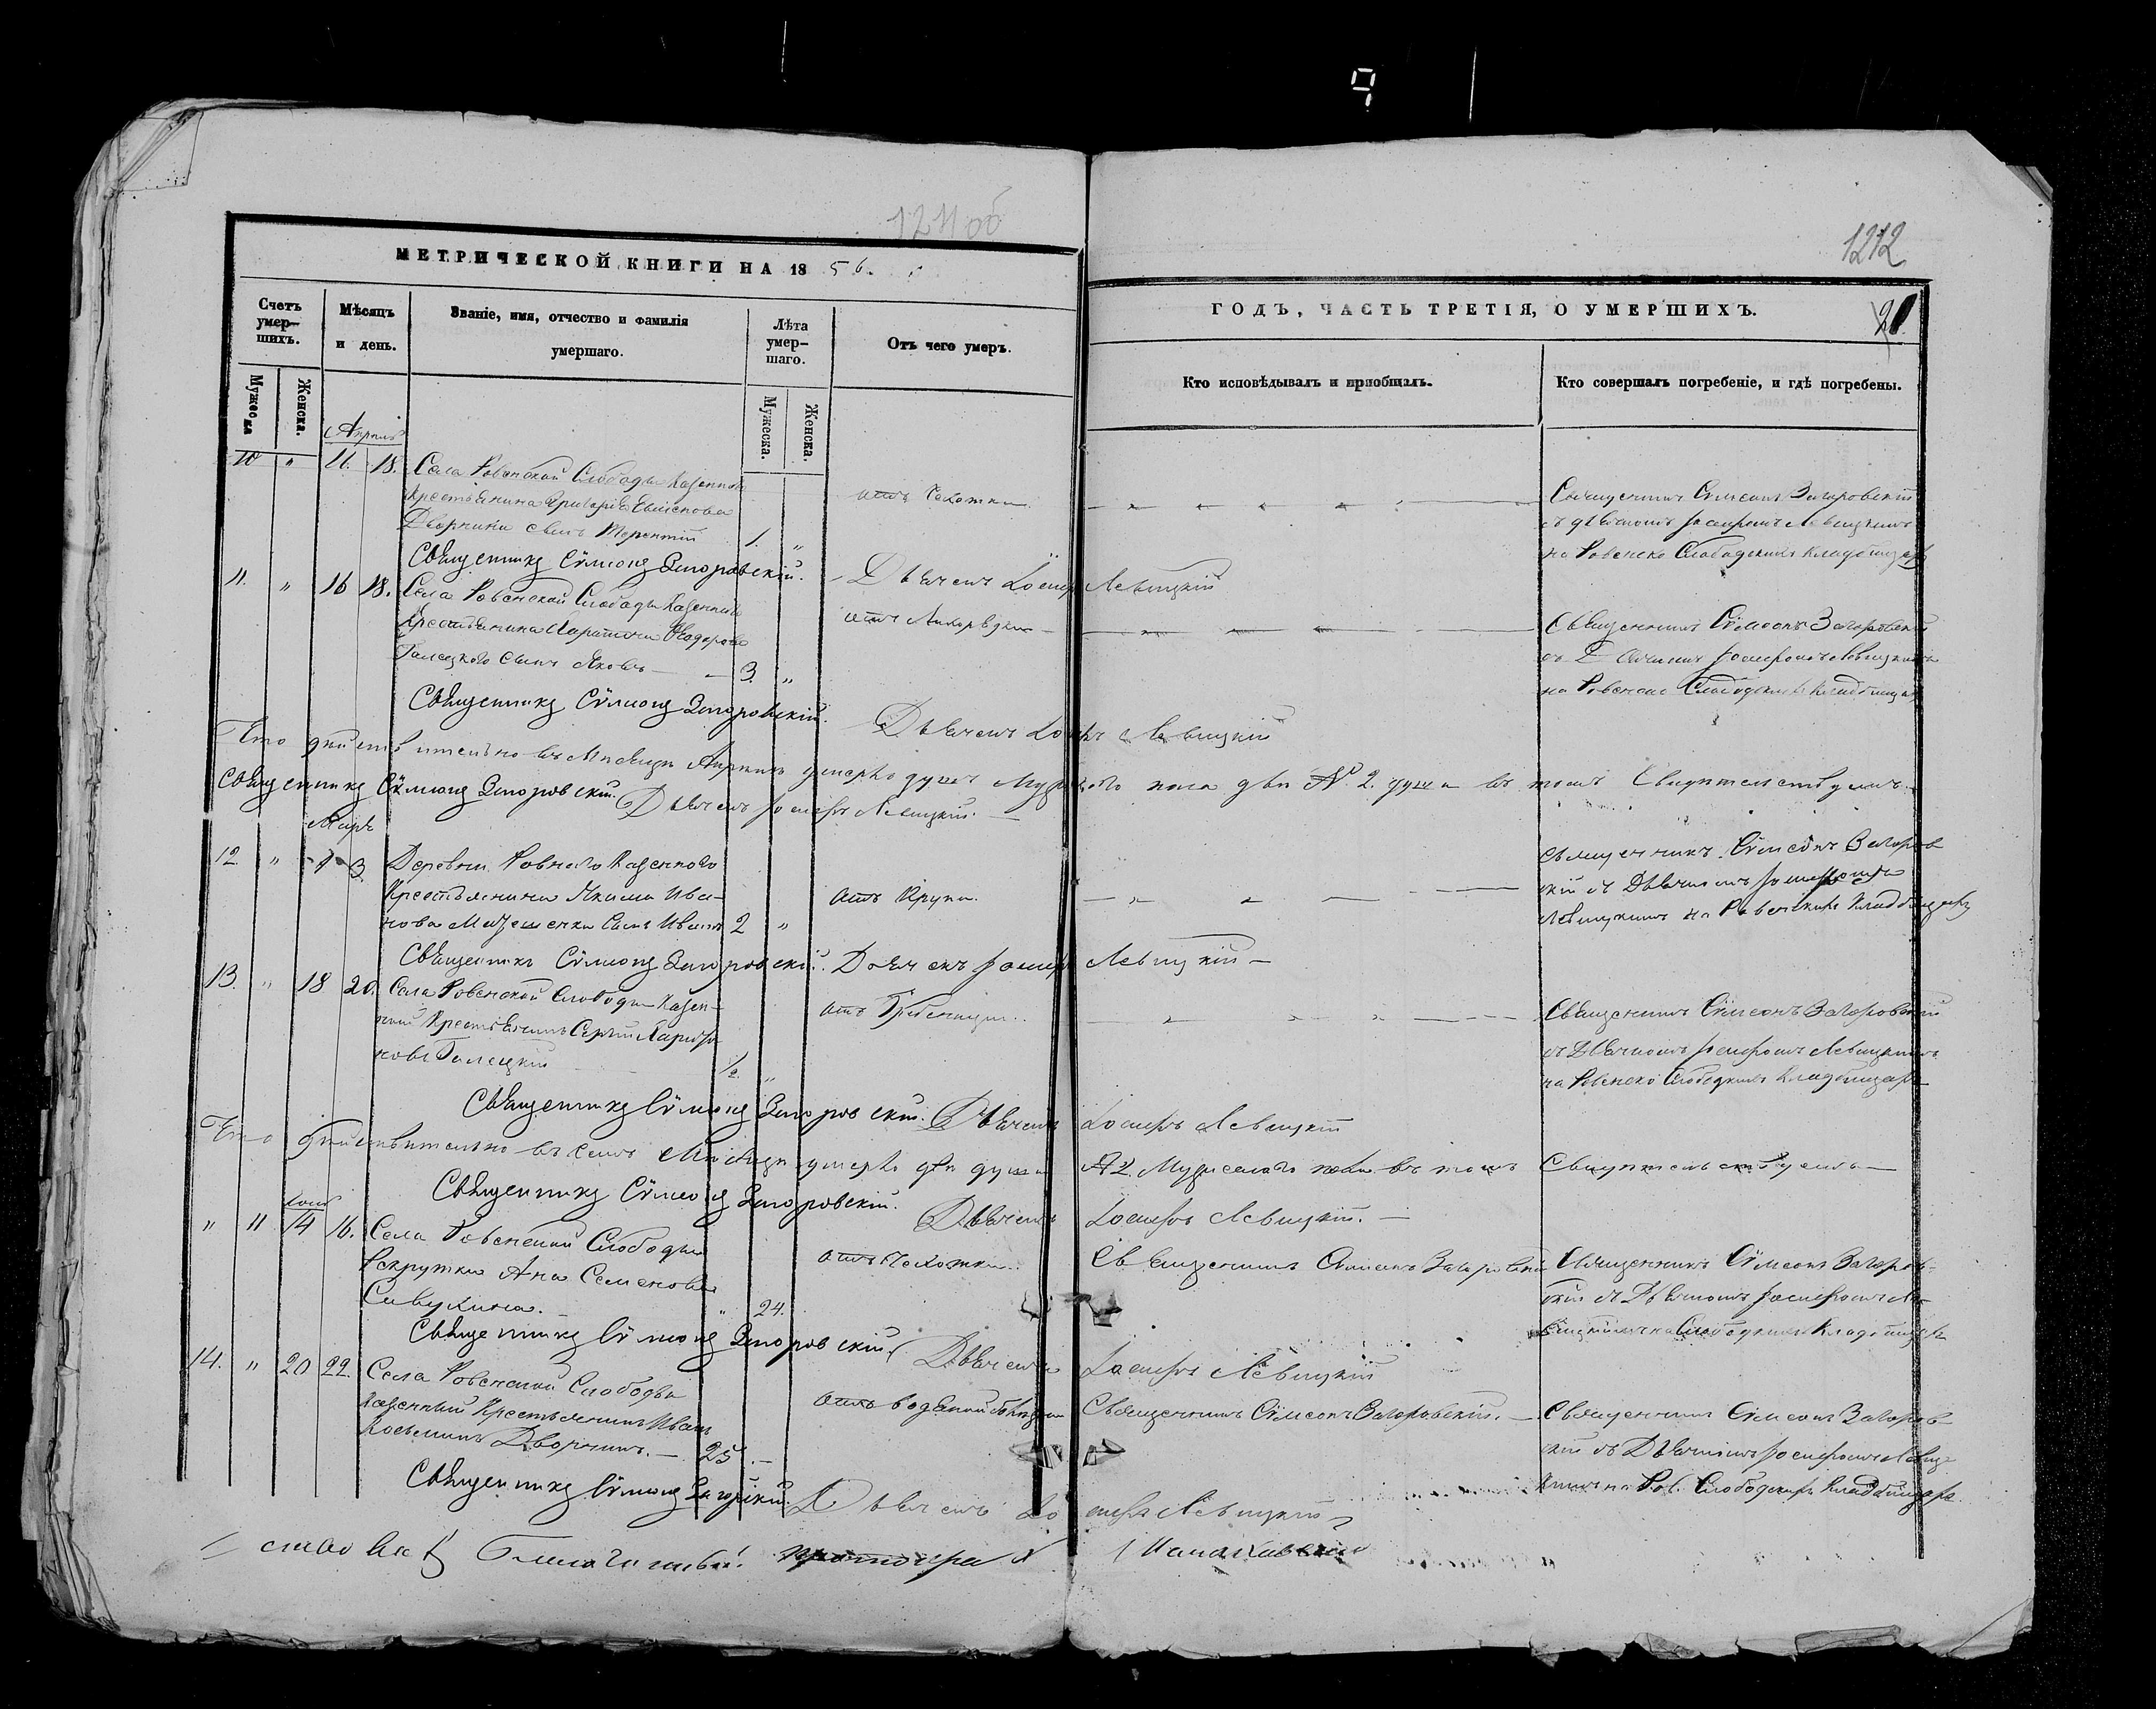 124 об
1212
МЕТРИЧЕСКОЙ КНИГИ НА 1856.
ГОДЪ, ЧАСТЬ ТРЕТІЯ, О УМЕРШИХЪ.
Счетъ умер-шихъ.
Мѣсяцъ и день.
Званіе, имя, отчество и фамилія умершаго.
Лѣта умер-шаго.
Отъ чего умеръ.
Кто исповѣдывалъ и пріобщалъ.
Кто совершалъ погребеніе, и гдѣ погребены.
Мужеска
Женска.
Мужеска.
Женска.
Апрель
10 " 11. 18. Села Ровенской Слободы Казеннаго
Крестьянина Григорія
Дворника сынъ Терентій 1. "
отъ Чахотки
Священникъ Сѵмеонъ Загоровскій
съ Дьячкомъ Іосифомъ Левицкимъ
на Ровенско Слободскомъ кладбищѣ
Священникъ Сѵмеонъ Загоровскій.
Дьячекъ Іосифъ Левицкій
11. " 16 18. Села Ровенской Слободы Казеннаго
Крестьянина Харитона Феодорова
Галецкого сынъ Яковъ 3. "
отъ Лихорадки
Священникъ Сѵмеонъ Загоровскій
съ Дьячкомъ Іосифомъ Левицкимъ
на Ровенско Слободскомъ Кладбищѣ
Священникъ Сѵмеонъ Загоровскій.
Дьячекъ Іосифъ Левицкій
Что дѣйствительно въ Мѣсяцѣ Апрѣлѣ умерло душъ Мужескаго пола двѣ № 2. души въ томъ Свидѣтельствуемъ.
Священникъ Сѵмеонъ Загоровскій. Дьячекъ Іосифъ Левицкій.
12 " 1 3. Деревни Ровнаго Казенного
Крестьянина Якима Ива-
нова сынъ Иванъ 2 "
отъ Крупа.
Священникъ Сѵмеонъ Загоров
скій съ Дьячкомъ Іосифомъ
Левицкимъ на Ровенскомъ Кладбищѣ
Священникъ Сѵмеонъ Загоровскій. Дьячекъ Іосифъ Левицкій
13. " 18 20. Села Ровенской Слободы Казен-
ный Крестьянинъ Сергѣй Харито-
новъ Галецкій ½. "
отъ
Священникъ Сѵмеонъ Загоровскій
съ Дьячкомъ Іосифомъ Левицкимъ
на Ровенско Слободскомъ Кладбищѣ
Священникъ Сѵмеонъ Загоровскій. Дьячекъ Іосифъ Левицкій
Что дѣйствительно въ семъ Мѣсяцѣ умерло двѣ души № 2. Мужескаго пола въ томъ Свидѣтельствуемъ
Священникъ Сѵмеонъ Загоровскій.
Дьячекъ Іосифъ Левицкій.
" 11 14 16. Села Ровенской Слободы
Рекрутка Анна Семенова
" 24.
отъ Чахотки.
Священникъ Сѵмеонъ Загоровскій
Священникъ Сѵмеонъ Загоров-
скій съ Дьячкомъ Іосифомъ Ле-
вицкимъ на Слободскомъ Кладбищѣ
Священникъ Сѵмеонъ Загоровскій. Дьячекъ Іосифъ Левицкій
14. " 20 22. Села Ровенской Слободы
Казенный Крестьянинъ Иванъ
Косьминъ Дворникъ. 25.
отъ водяной болѣзни
Священникъ Сѵмеонъ Загоровскій.
Священникъ Сѵмеонъ Загоров-
скій съ Дьячкомъ Іосифомъ Левиц-
кимъ на Ров. Слободскомъ Кладбищѣ
Священникъ Сѵмеонъ Загорскій. Дьячекъ Іосифъ Левицкій
Благочинный